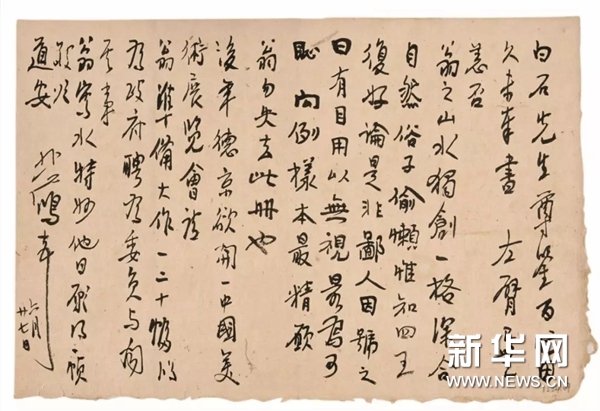 白石先生尊鑒百
久未奉書 左臂
恙否
翁之山水獨創一格深合
自然俗子偷懶惟知四王
復好論是非鄙人因號之
曰有目用以無視最為可
恥 例樣本最精願
翁勿失去此冊也
後年德京欲開一中國美
術展覽會請
翁準備大作一二十幅
為政府聘為委員與聞
其事
翁寫水特妙他日願得一幀
道安
悲鴻
六月
廿七日
新华网
WWW.NEWS.CN